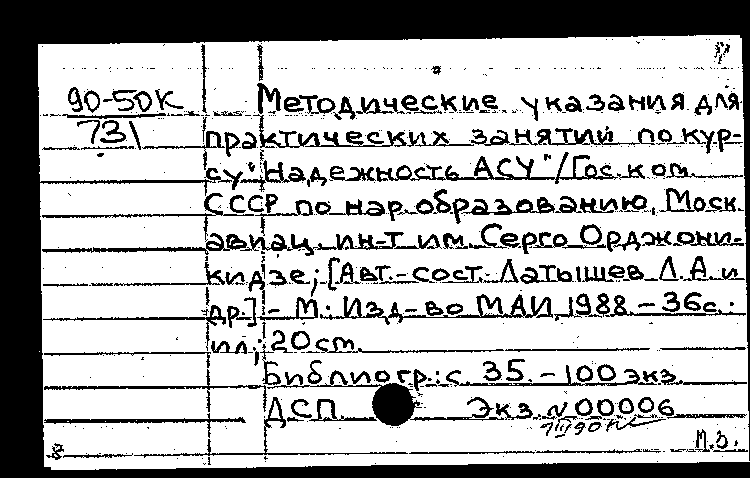 90-50К
731
Методические указания для
практических занятий по кур-
су "Надежность АСУ"/Гос. ком.
СССР по нар. образованию, Моск.
авиац. ин-т им. Серго Орджони-
кидзе; [Авт.-сост. Латышев Л.А. и
др.] - М.: Изд-во МАИ, 1988. - 36с.:
ил.; 20 ст.
Библиогр.: с. 35. - 100 экз.
ДСП. Экз. N 00006
М.З.